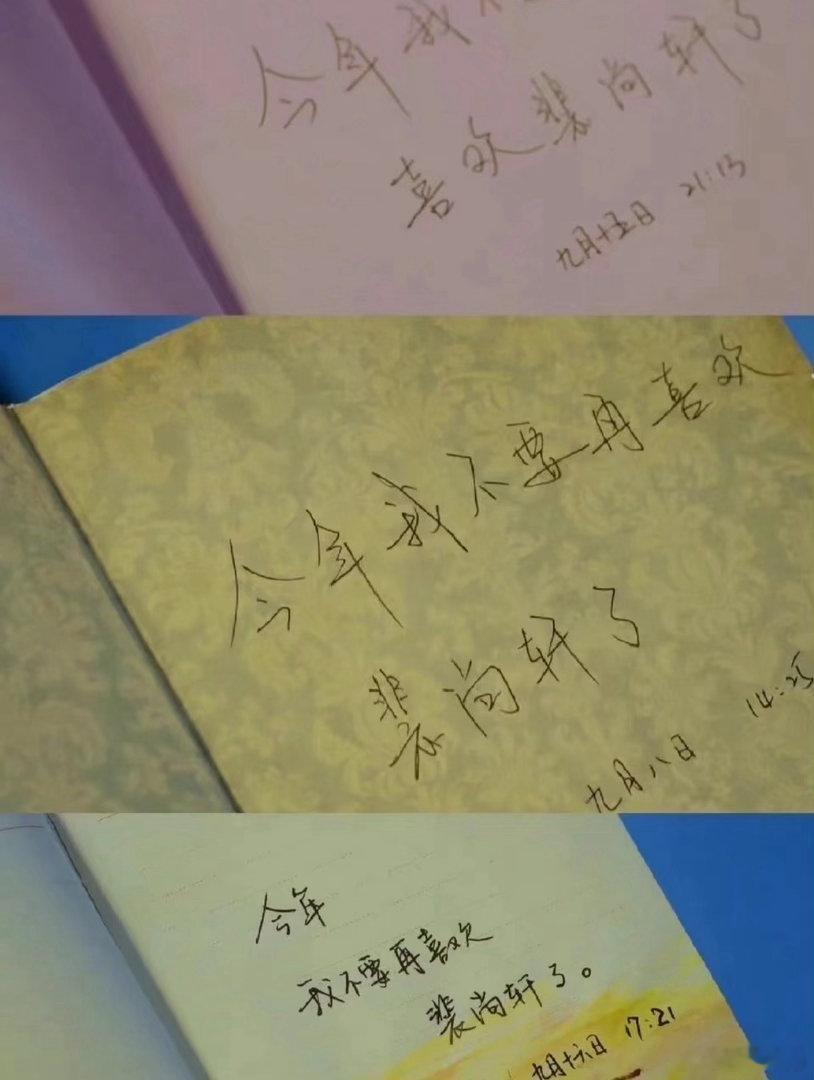 今年我不
喜欢裴尚轩了
九月十五日 21:13
今年我不要再喜欢
裴尚轩了
九月八日 14:25
今年
我不要再喜欢
裴尚轩了。
九月十六日 17:21